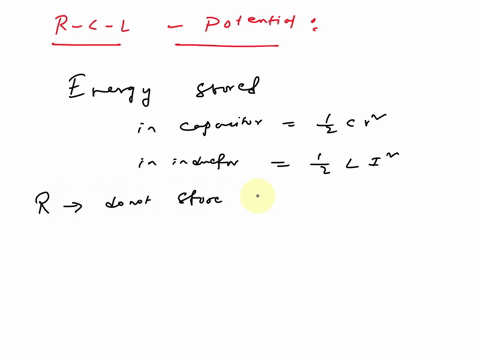 R-C-L - Potential :
Energy stored
in capacitor = 1/2 C V²
in inductor = 1/2 L I²
R → do not store